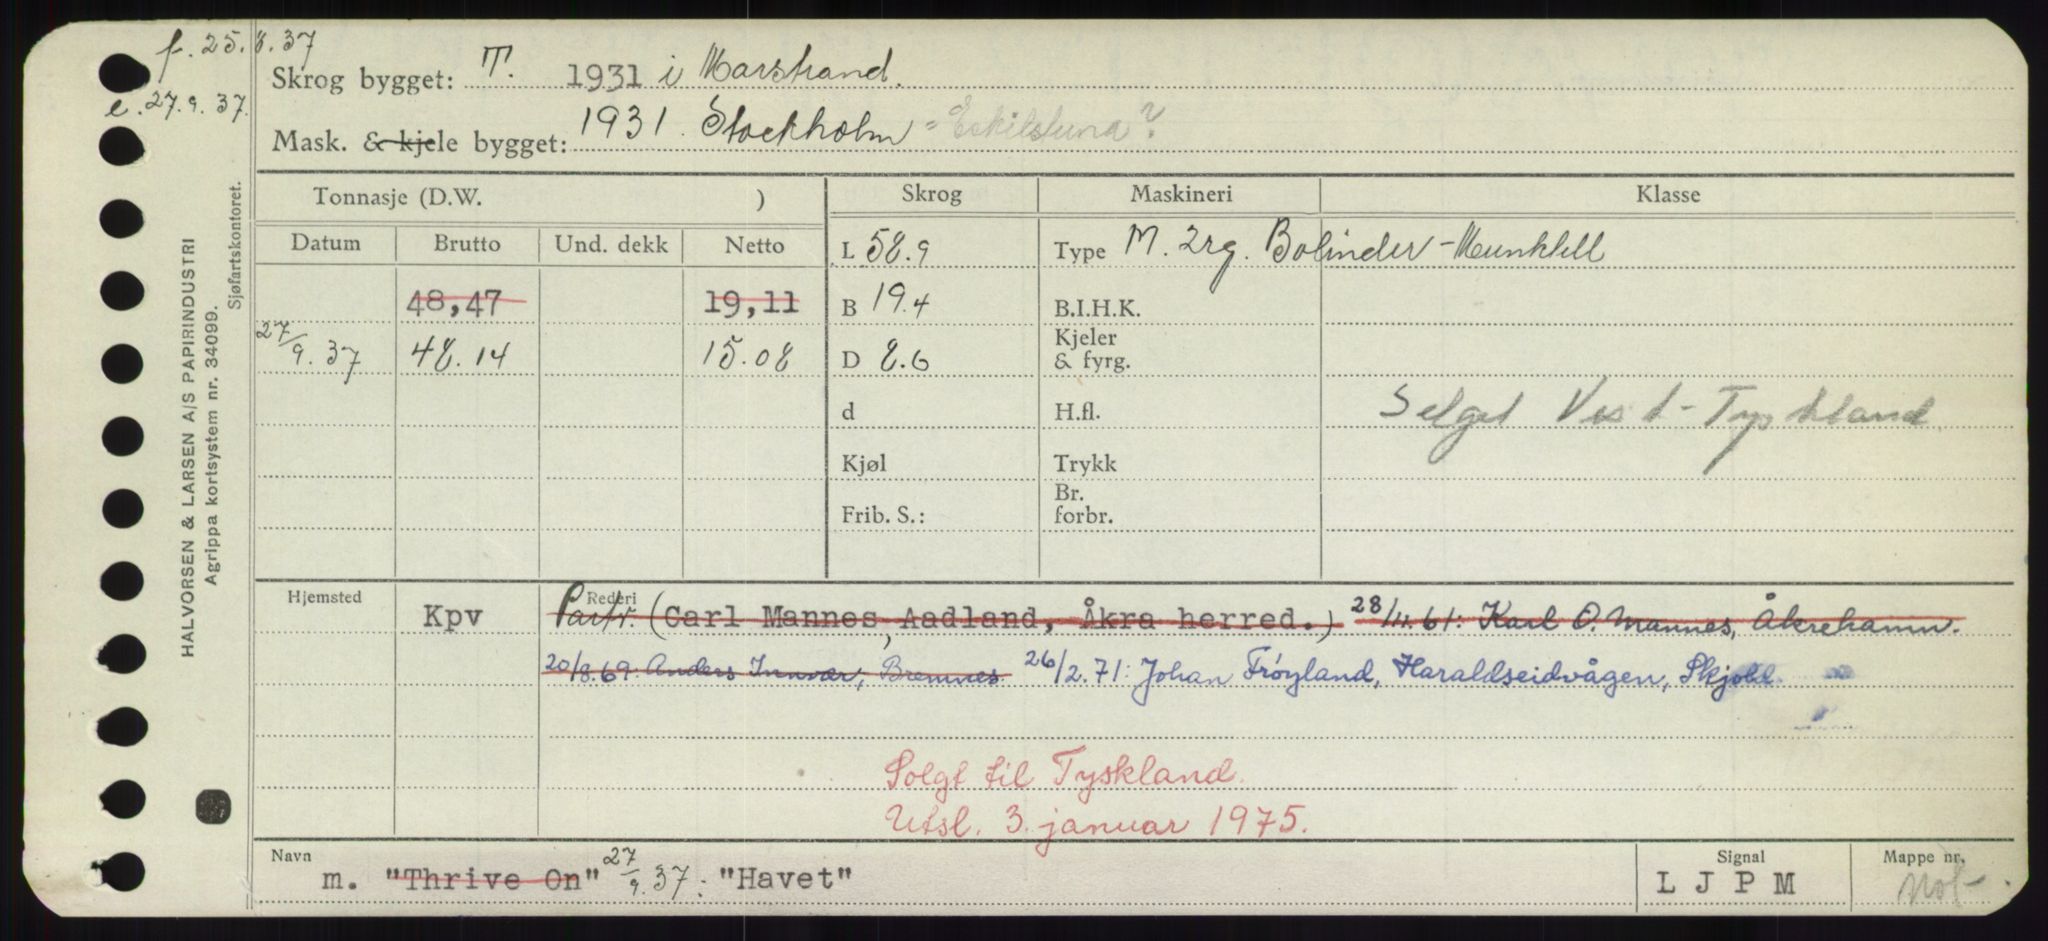 f. 25.8.37
e. 27.9.37.
Skrog bygget: T. 1931 i Marstrand.
Mask. & kjele bygget: 1931. Stockholm = Eskilstuna?
Tonnasje (D.W. ) Skrog Maskineri Klasse
Datum Brutto Und. dekk Netto L 58.9 Type M. 2rg. Bolinder-Munktell
48,47 19,11 B 19.4 B.I.H.K.
27/9.37 48.14 15.08 D 8.6 Kjeler & fyrg.
d H.fl. Selget Vest-Tyskland
Kjøl Trykk
Frib. S.: Br. forbr.
Hjemsted Rederi
Kpv Partr. (Carl Mannes, Aadland, Åkra herred.) 28/11.61: Karl O. Mannes, Åkrehamn.
20/8.69: Anders Innvær, Bremnes 26/2.71: Johan Frøyland, Haraldseidvågen, Skjold
Solgt til Tyskland.
Utsl. 3. januar 1975.
Navn Signal Mappe nr.
m. "Thrive On" 27/9.37: "Havet" LJPM Mot-
HALVORSEN & LARSEN A/S PAPIRINDUSTRI
Agrippa kortsystem nr. 34099.
Sjøfartskontoret.